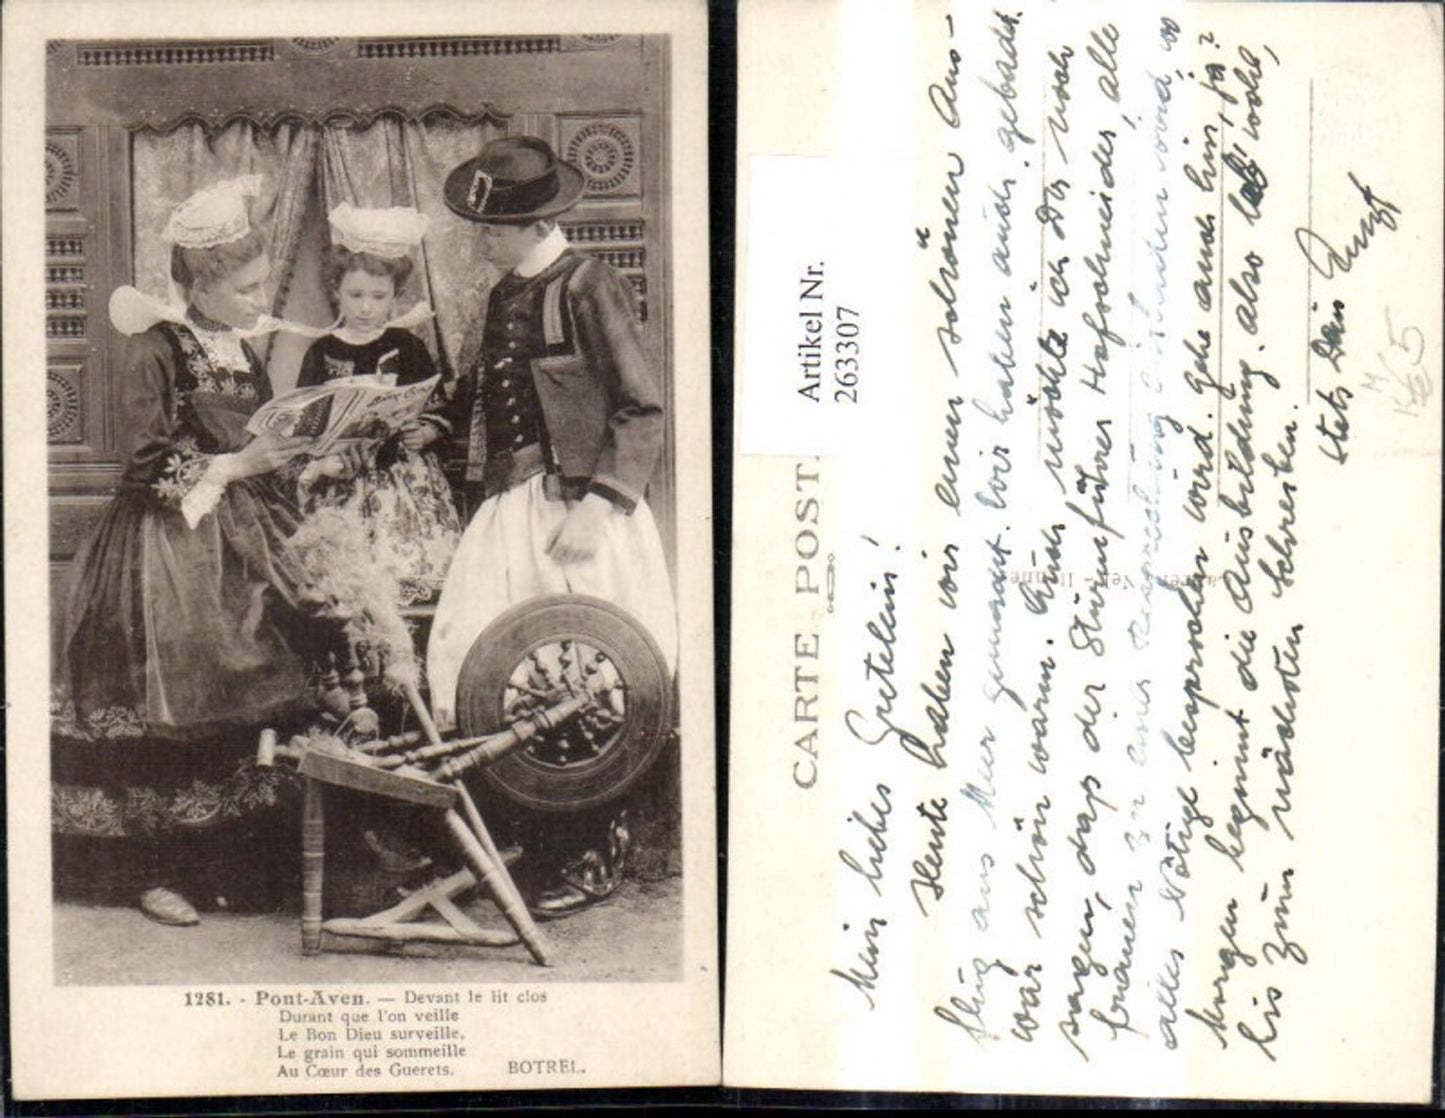 1281. - Pont-Aven. — Devant le lit clos
Durant que l'on veille
Le Bon Dieu surveille,
Le grain qui sommeille
Au Cœur des Guerets. BOTREL.
CARTE POST
Artikel Nr.
263307
Mein liebes Gretelein!
Heute haben wir einen schönen Aus-
flug ans Meer gemacht. Wir haben auch gebadet.
War schön warm. Auch möchte ich Dir noch
sagen, dass der Sturmführer Hofschneider, alle
frauen zu einer Besprechung einladen wird, wo
alles Nötige besprochen wird. Gehe auch hin, ja?
Morgen beginnt die Ausbildung. also leb' wohl,
bis zum nächsten Schreiben.
stets Dein